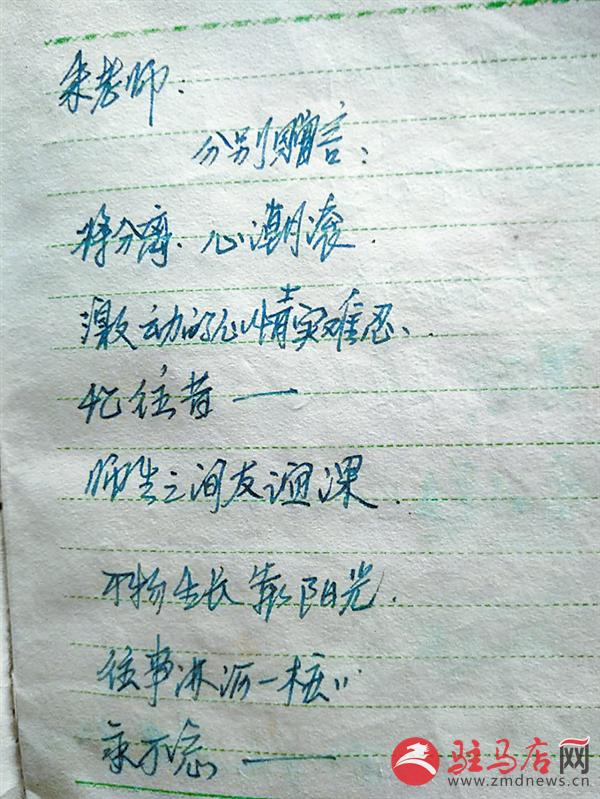 朱老师：
分别赠言：
将分离、心潮滚.
激动的心情实难忍、
忆往昔——
师生之间友谊深.
万物生长靠阳光.
往事永沥一桩桩
永不忘——
驻马店网
www.zmdnews.cn